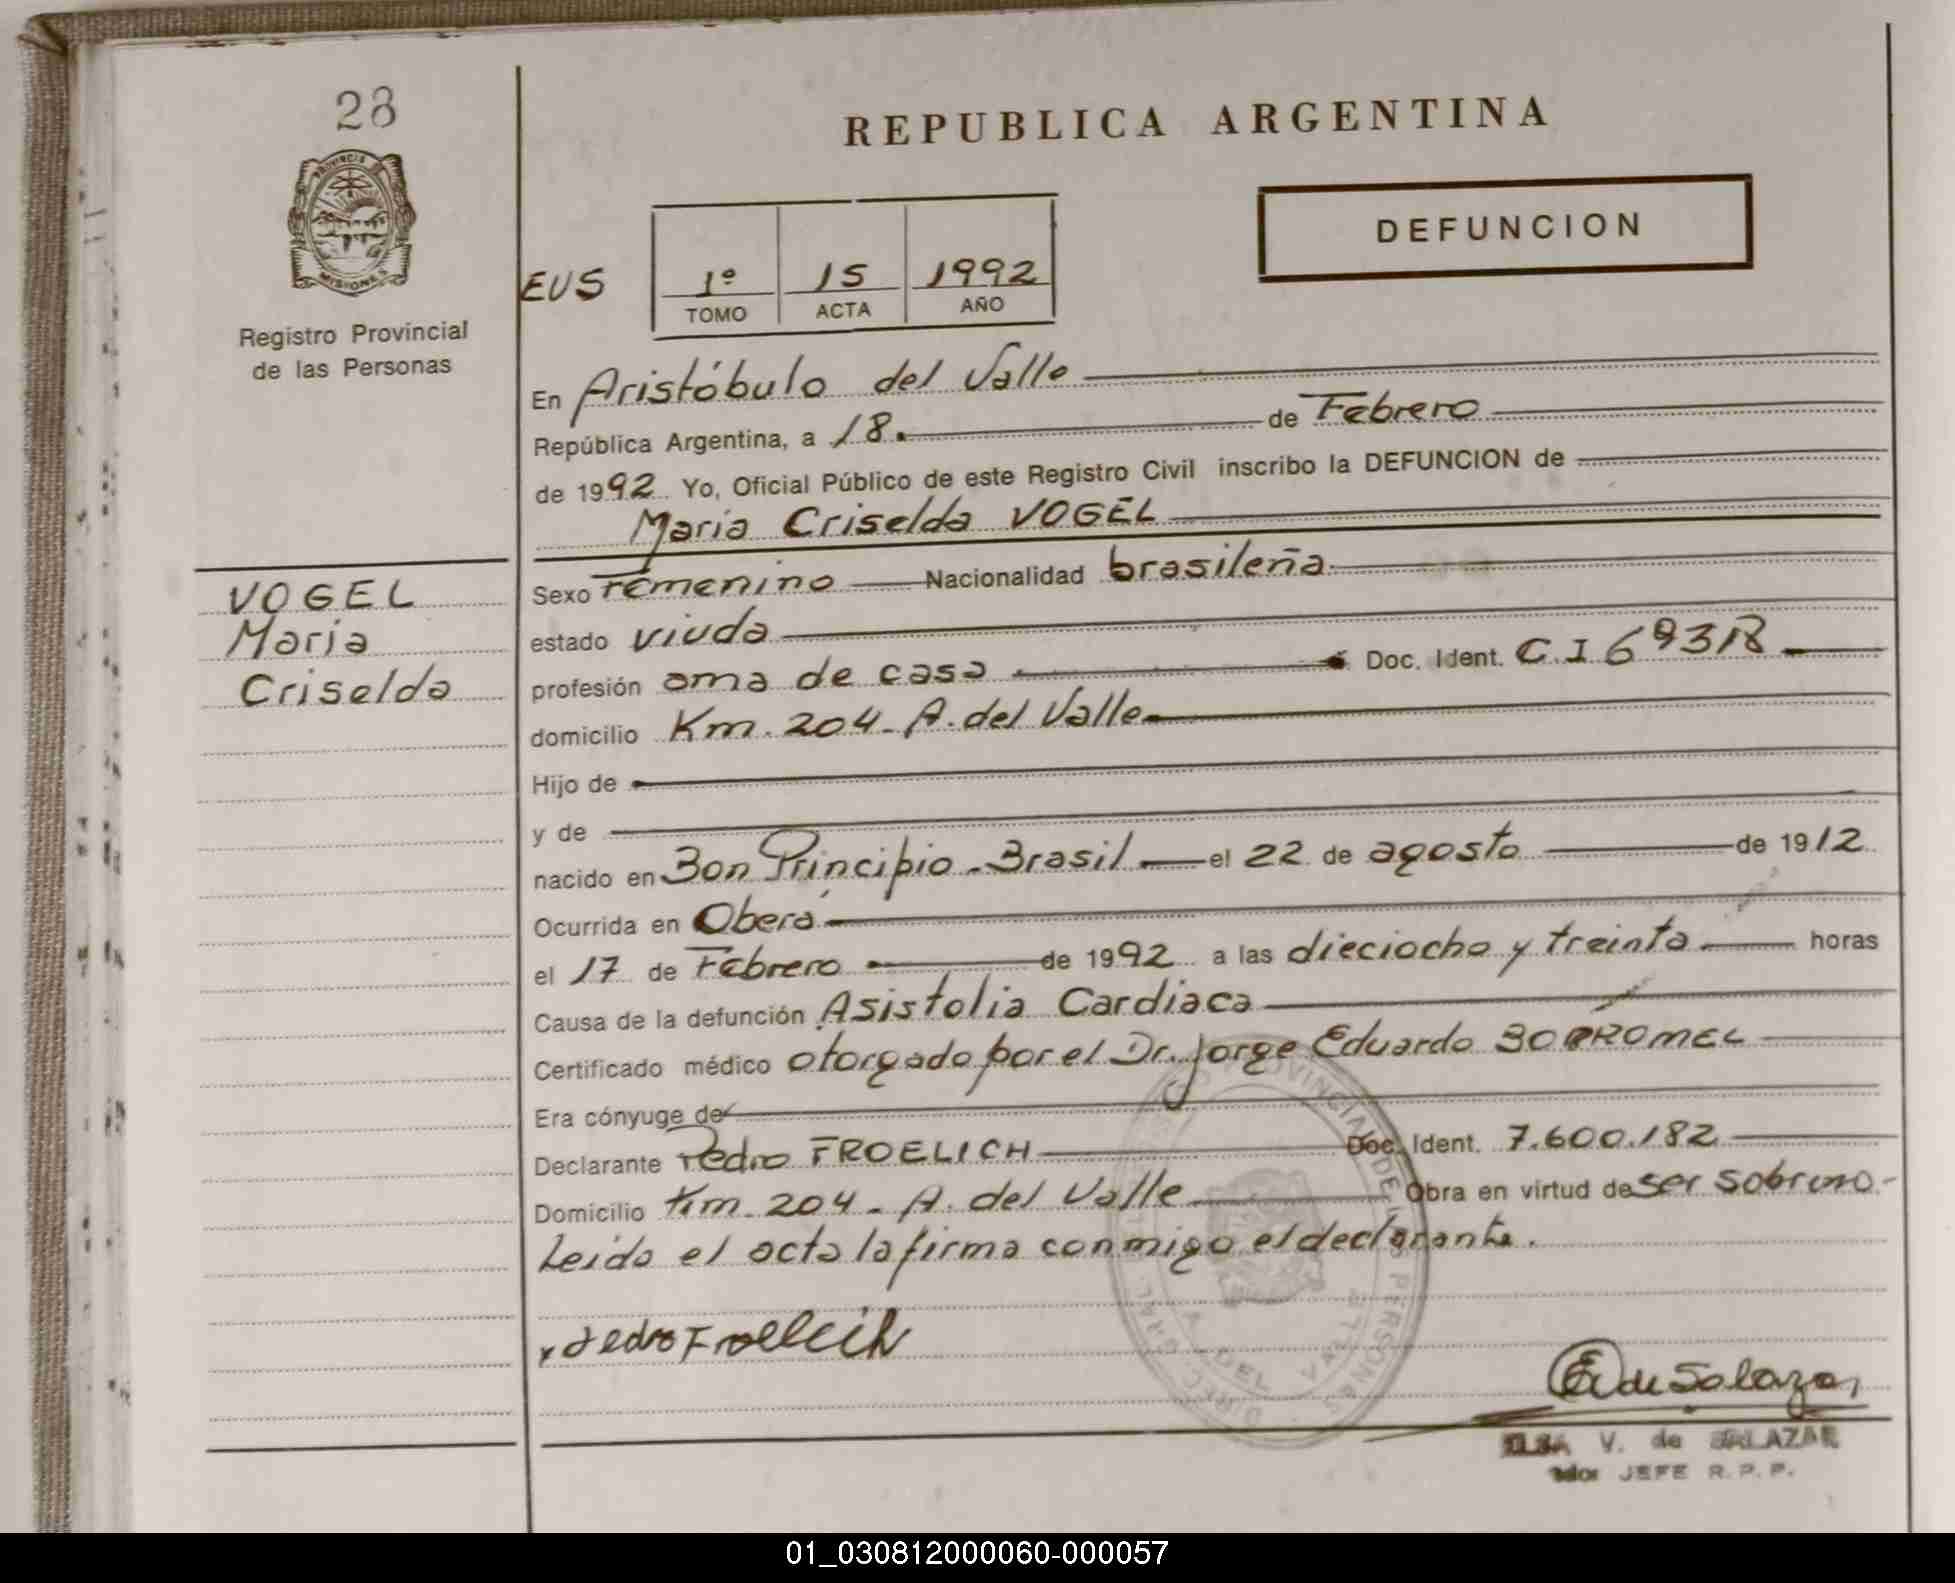 28
PROVINCIA
MISIONES
Registro Provincial
de las Personas
VOGEL
Maria
Criselda
REPUBLICA ARGENTINA
DEFUNCION
EUS
1º 15 1992
TOMO ACTA AÑO
En Aristóbulo del Valle
República Argentina, a 18. de Febrero
de 1992 Yo, Oficial Público de este Registro Civil inscribo la DEFUNCION de
Maria Criselda VOGEL
Sexo Femenino Nacionalidad brasileña
estado viuda
profesión ama de casa Doc. Ident. C.I
domicilio Km. 204 - A. del Valle
Hijo de
y de
nacido en Bon Principio - Brasil el 22 de agosto de 1912
Ocurrida en Oberá
el 17 de Febrero de 1992 a las dieciocho y treinta horas
Causa de la defunción Asistolia Cardiaca
Certificado médico otorgado por el Dr. Jorge Eduardo
Era cónyuge de
Declarante Pedro FROELICH Doc. Ident. 7.600.182
Domicilio Km. 204 - A. del Valle Obra en virtud de ser sobrino-
Leida el acta la firma conmigo el declarante.
Pedro Froelich
de Salazar
ELSA V. de SALAZAR
JEFE R.P.P.
01_030812000060-000057